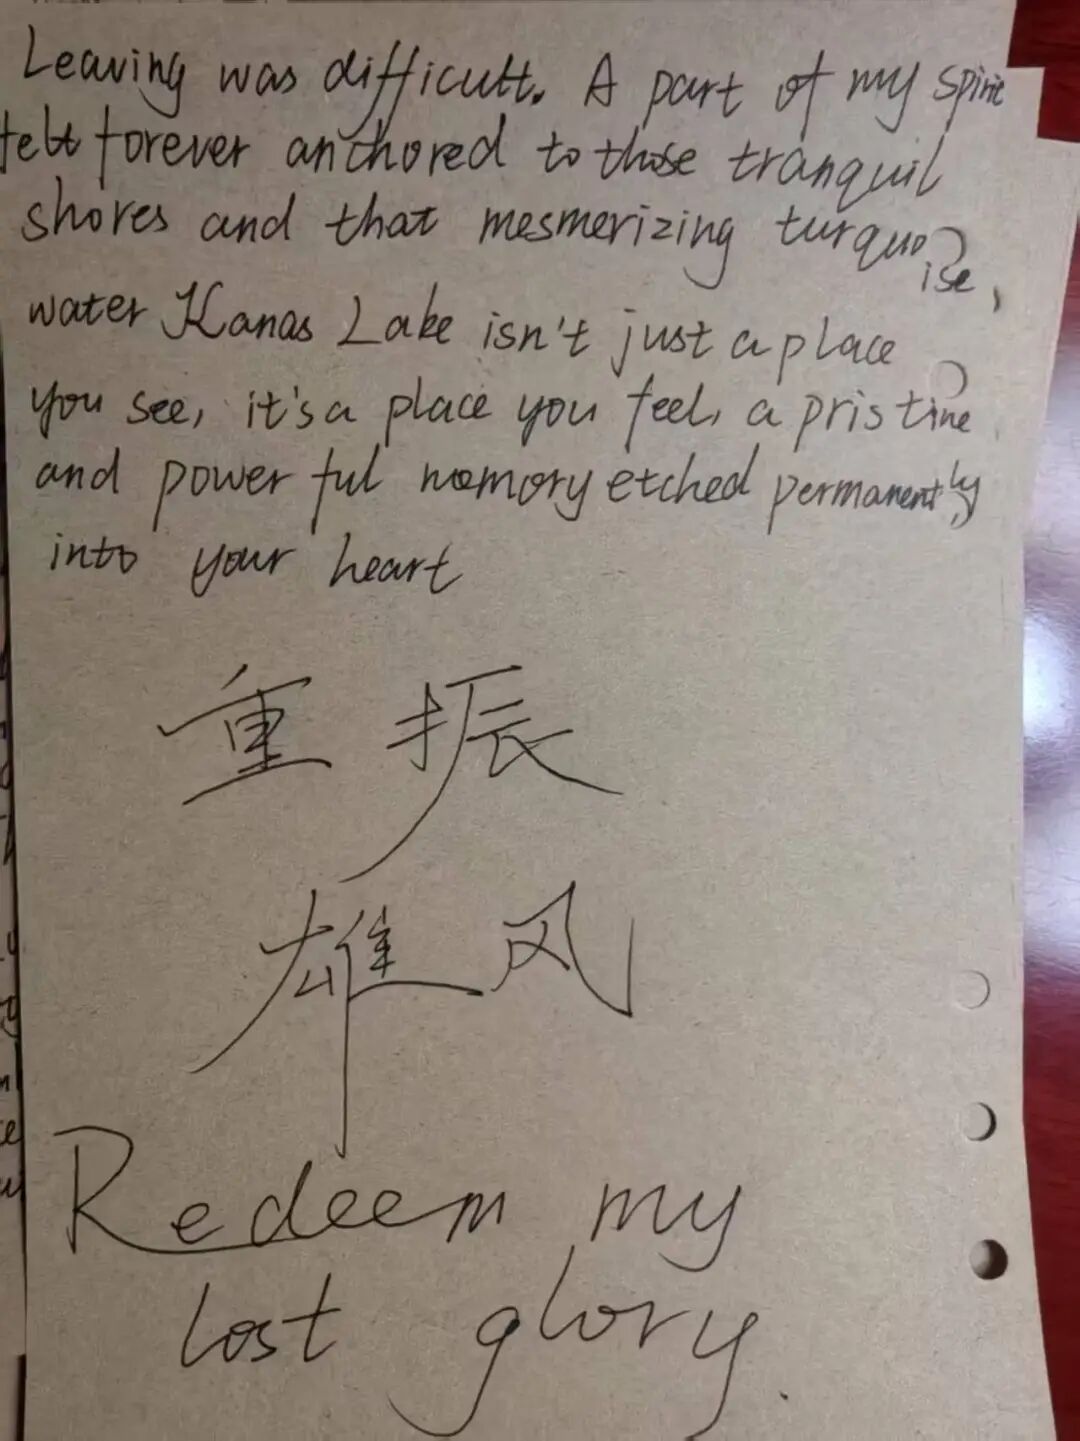 Leaving was difficult. A part of my spirit
felt forever anchored to those tranquil
shores and that mesmerizing turquoise,
water Kanas Lake isn't just a place
you see, it's a place you feel, a pristine
and powerful memory etched permanently
into your heart
重振
雄风
Redeem my
lost glory.